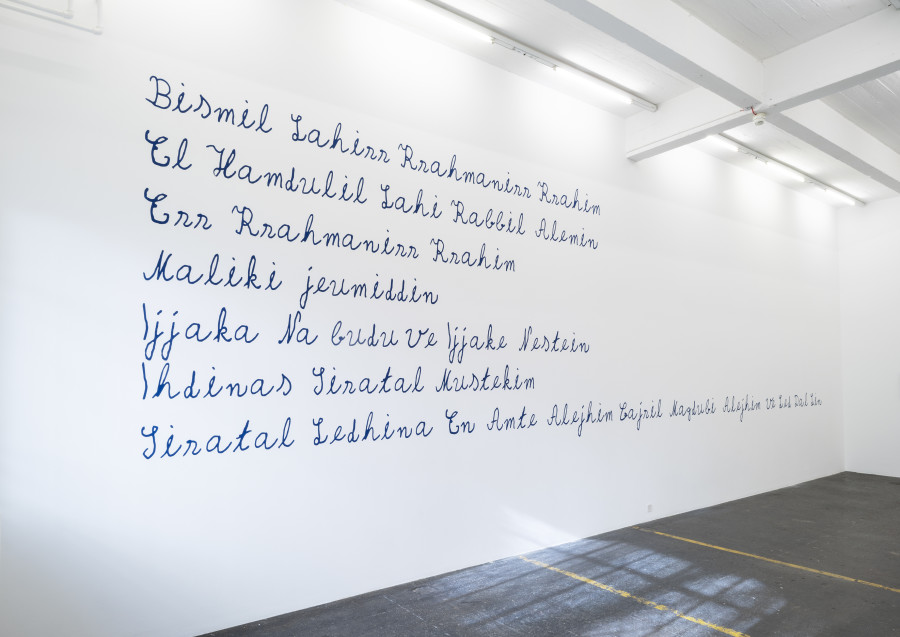 Bismil Lahirr Rrahmanirr Rrahim
El Hamdulil Lahi Rabbil Alemin
Err Rrahmanirr Rrahim
Maliki jeumiddin
Ijjaka Na budu Ve Ijjake Nestein
Ihdinas Siratal Mustekim
Siratal Ledhina En Amte Alejhim Gajril Magdubi Alejhim Ve Led Dal Lin